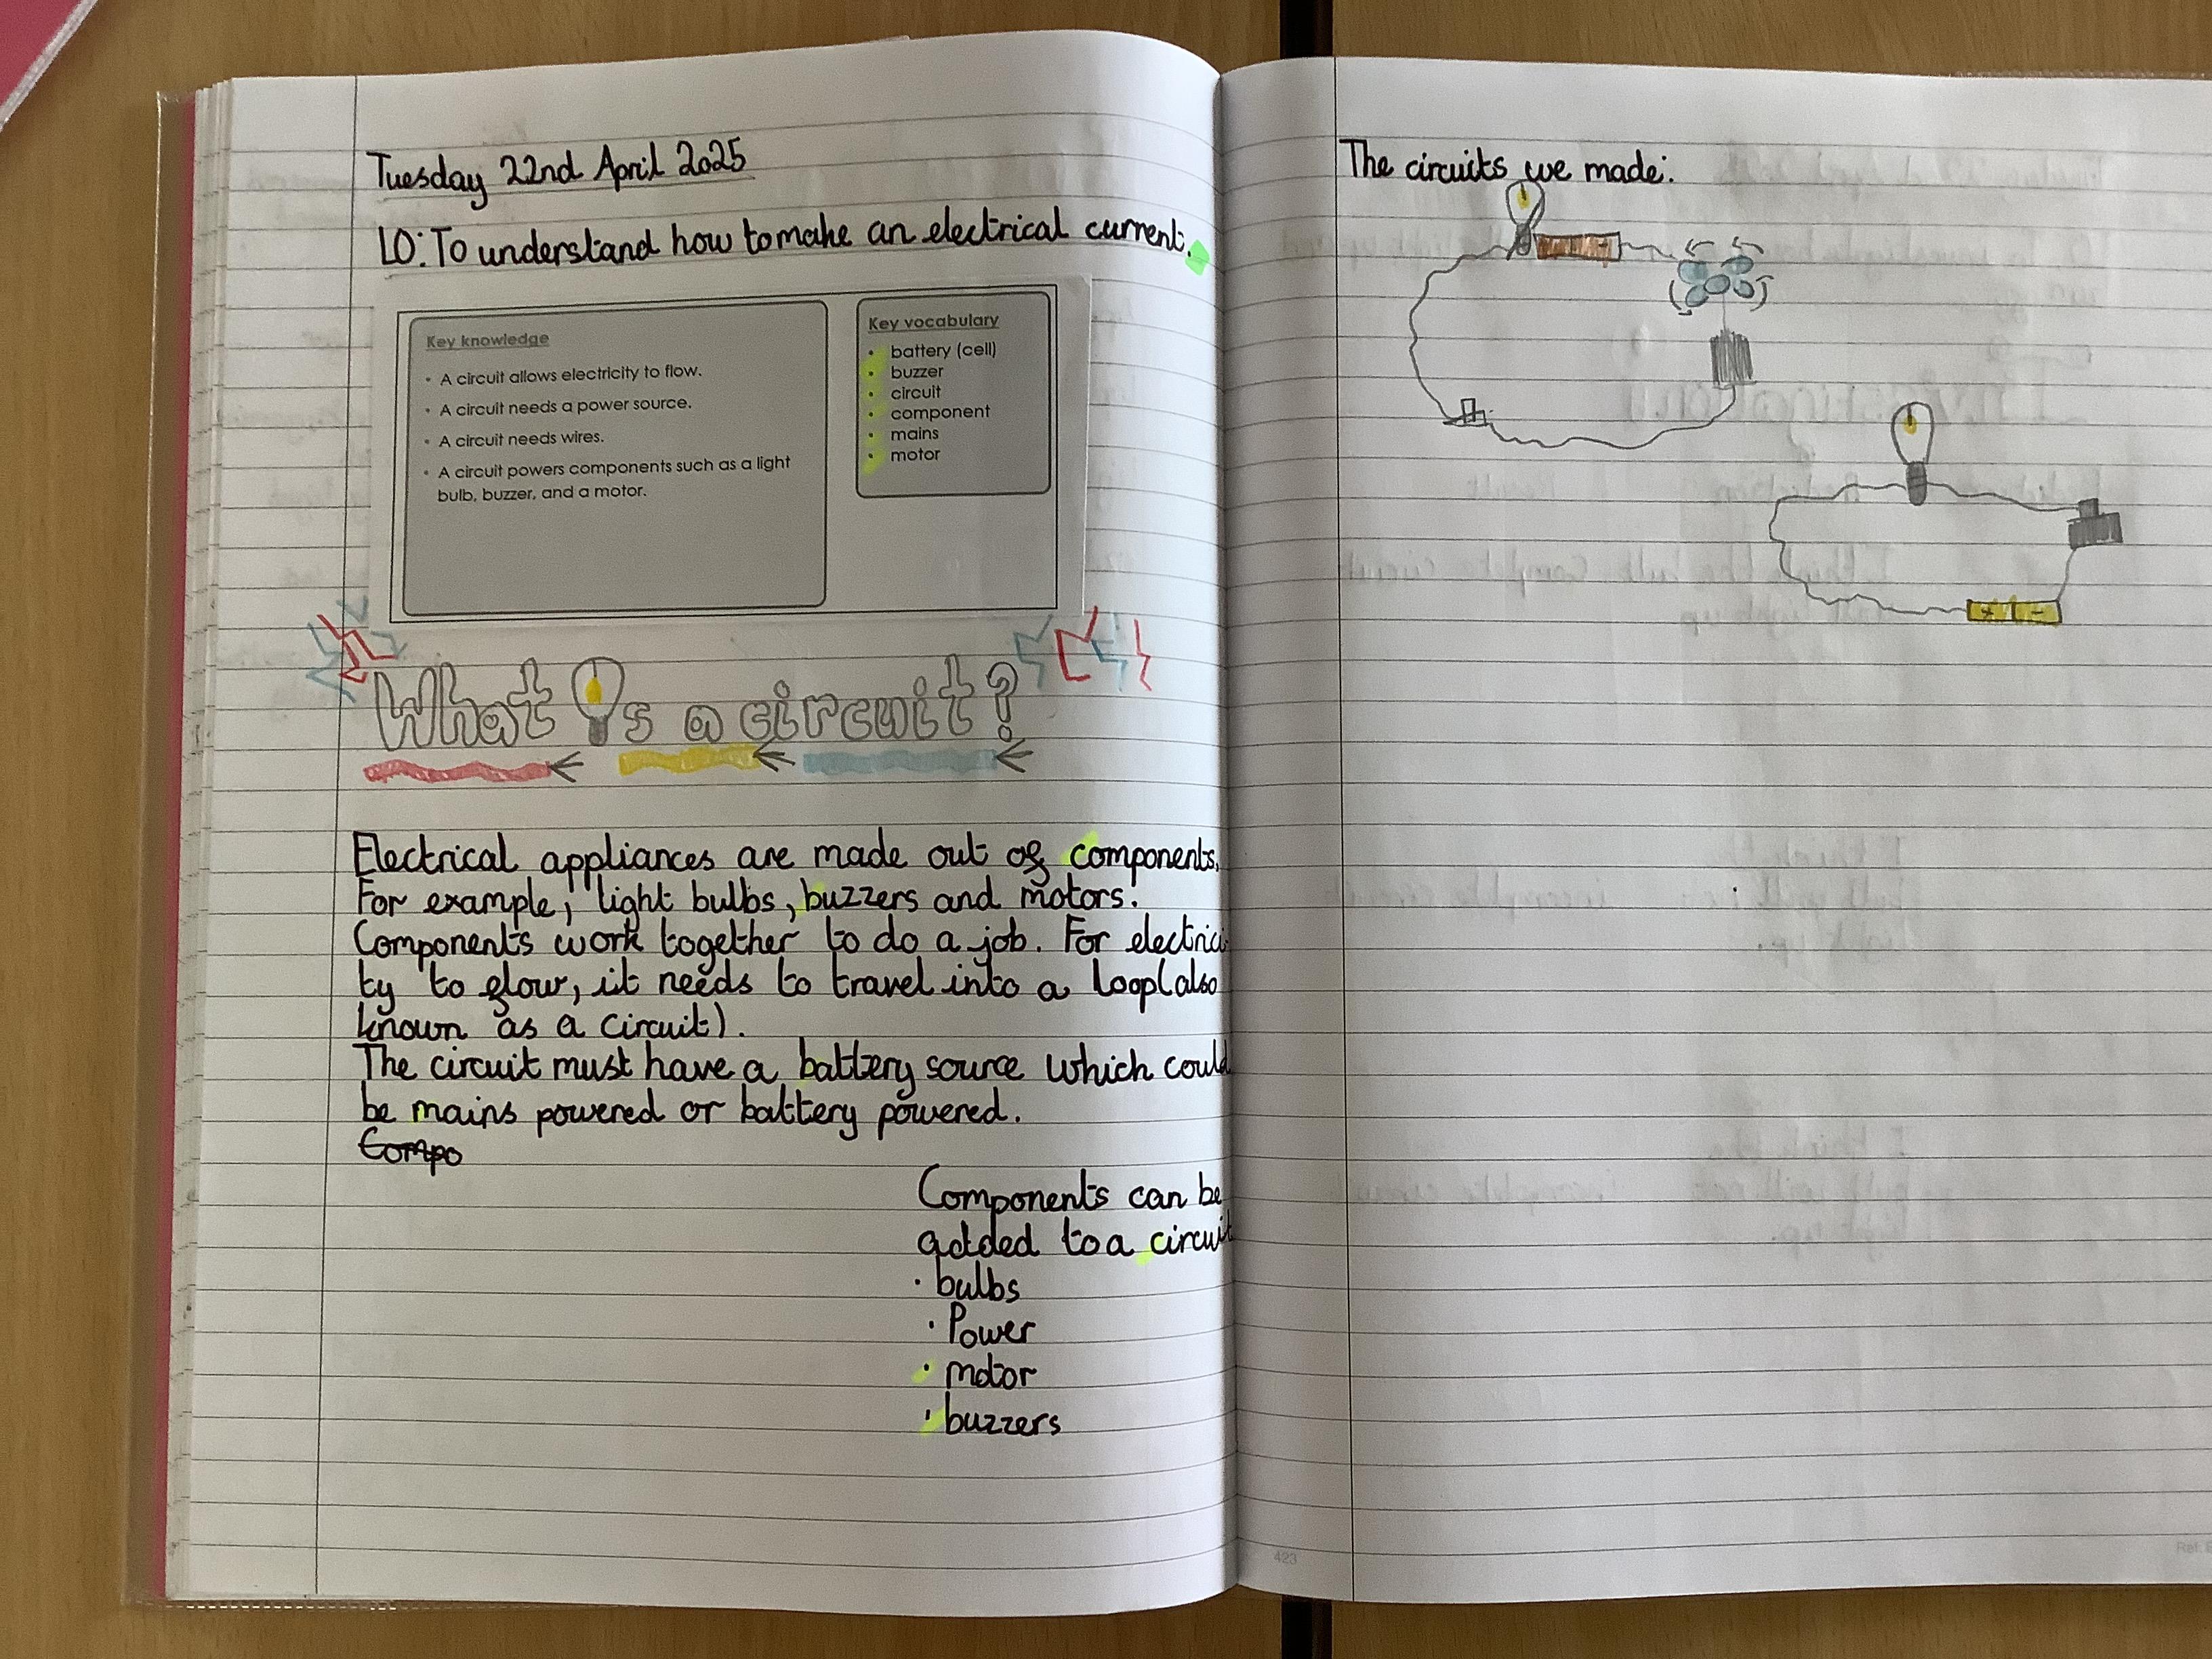 Tuesday 22nd April 2025
LO: To understand how to make an electrical current.
Key knowledge
• A circuit allows electricity to flow.
• A circuit needs a power source.
• A circuit needs wires.
• A circuit powers components such as a light
bulb, buzzer, and a motor.
Key vocabulary
• battery (cell)
• buzzer
• circuit
• component
• mains
• motor
What is a circuit?
Electrical appliances are made out of components.
For example, light bulbs, buzzers and motors.
Components work together to do a job. For electrici
ty to flow, it needs to travel into a loop(also
known as a circuit).
The circuit must have a battery source which could
be mains powered or battery powered.
Compo
Components can be
added to a circuit
• bulbs
• Power
• motor
• buzzers
The circuits we made:
-
+ -
423